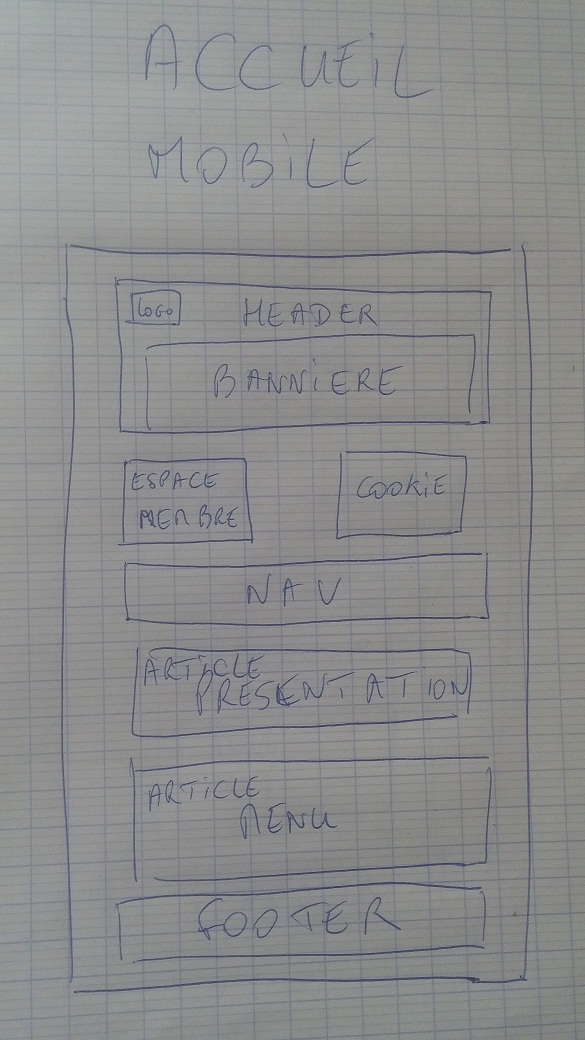 ACCUEIL
MOBILE
LOGO
HEADER
BANNIERE
ESPACE
MEMBRE
COOKIE
NAV
ARTICLE
PRESENTATION
ARTICLE
MENU
FOOTER